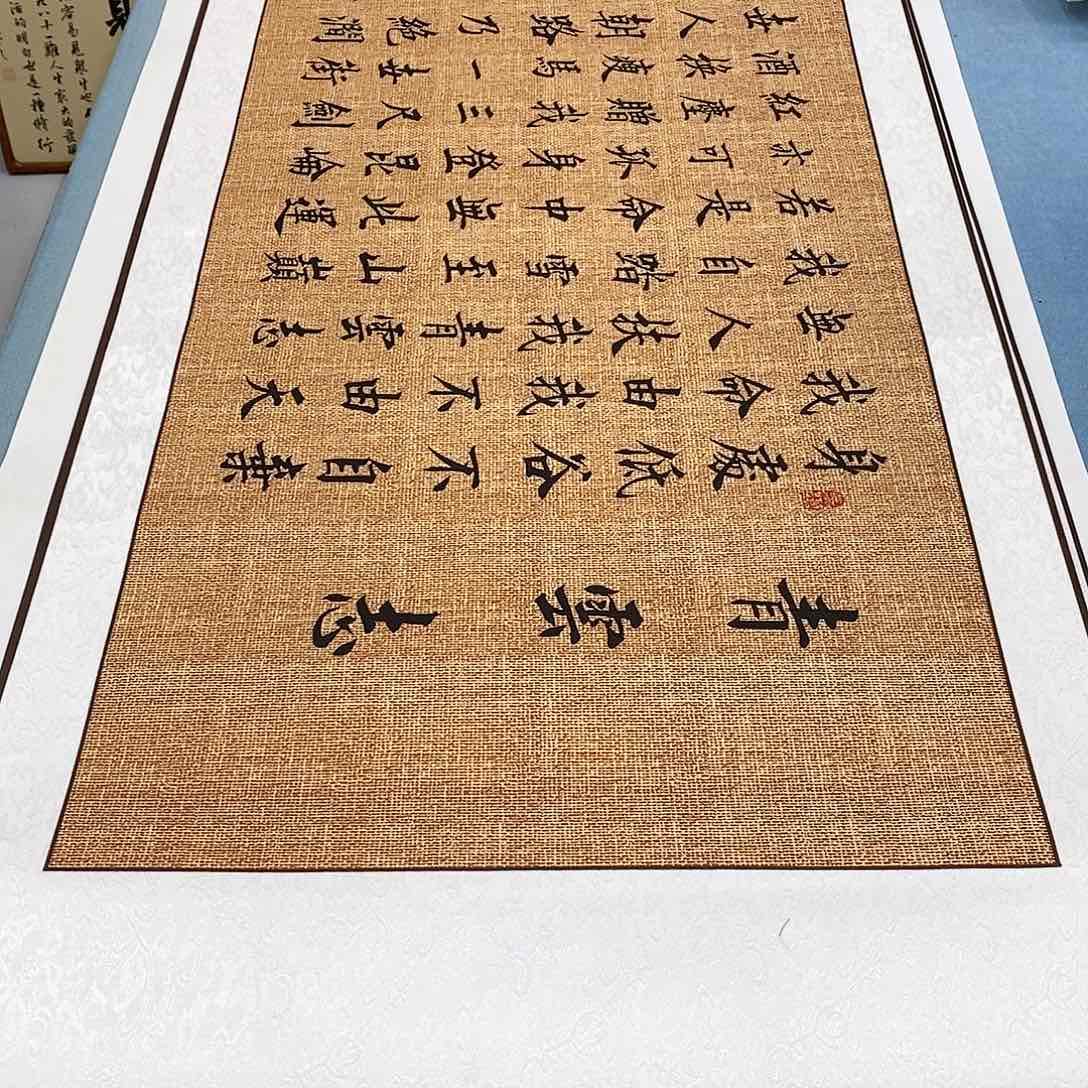 青雲志
身處低谷不自棄
我命由我不由天
無人扶我青雲志
我自踏雪至山巔
若是命中無此運
亦可孤身登昆侖
紅塵贈我三尺劍
酒換瘦馬一
人朝路乃絕澗